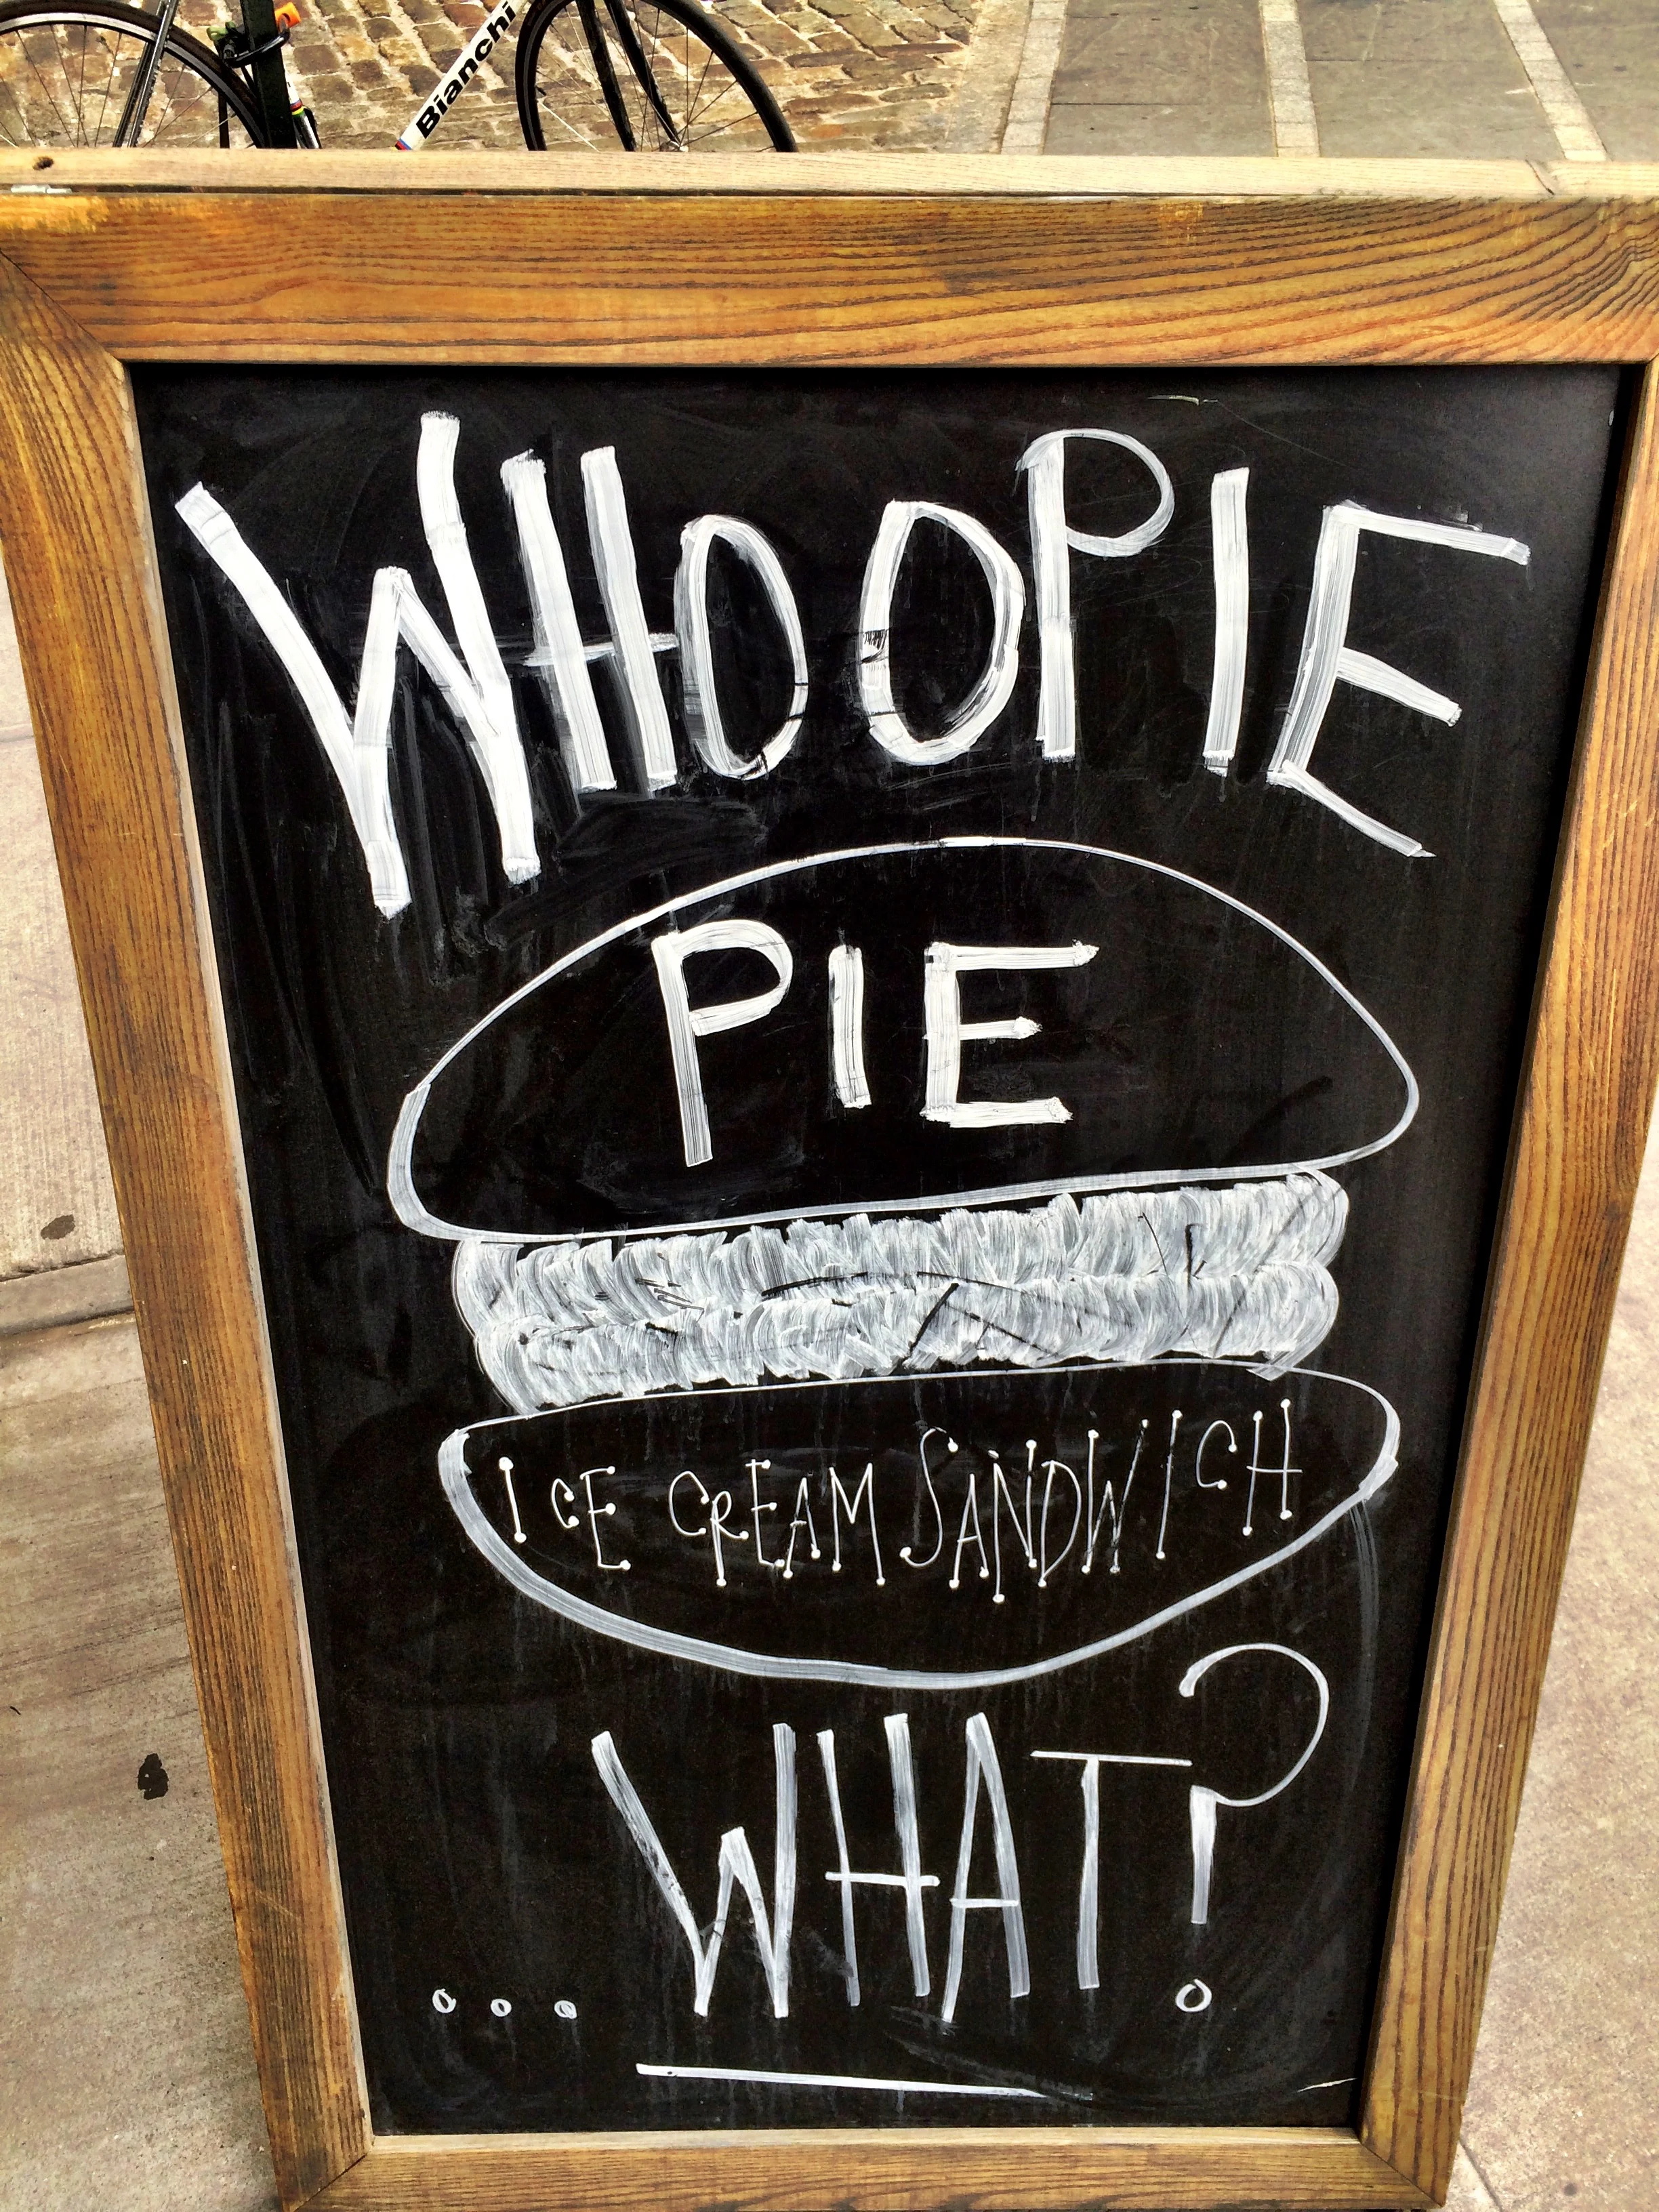 Bianchi
WHOOPIE
PIE
ICE CREAM SANDWICH
... WHAT?